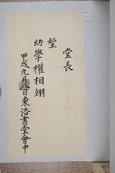 堂長
望
幼學權相翊
甲戌九月 日東洛書堂會中